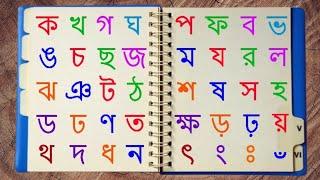 ক খ গ ঘ
ঙ চ ছ জ
ঝ ঞ ট ঠ
ড ঢ ণ ত
থ দ ধ ন
প ফ ব ভ
ম য র ল
শ ষ স হ
ক্ষ ড় ঢ় য়
ৎ ং ঃ ঁ
V
VI